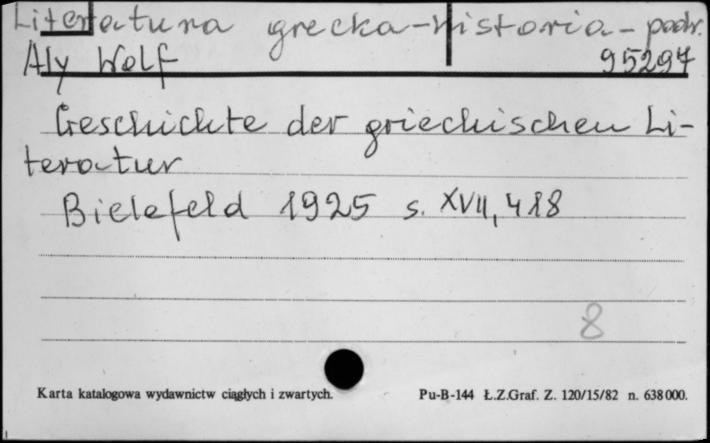 Literatura grecka-historia-podr.
95297
Aly Wolf
Geschichte der griechischen Li-
teratur
Bielefeld 1925 s. XVII, 418
8
Karta katalogowa wydawnictw ciągłych i zwartych. Pu-B-144 Ł.Z.Graf. Z. 120/15/82 n. 638000.